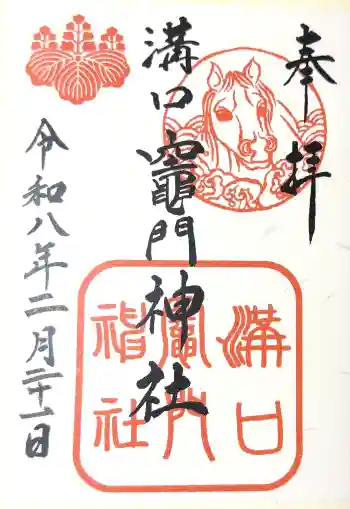 奉拝
溝口竈門神社
令和八年二月二十一日
溝口
竈門
神社